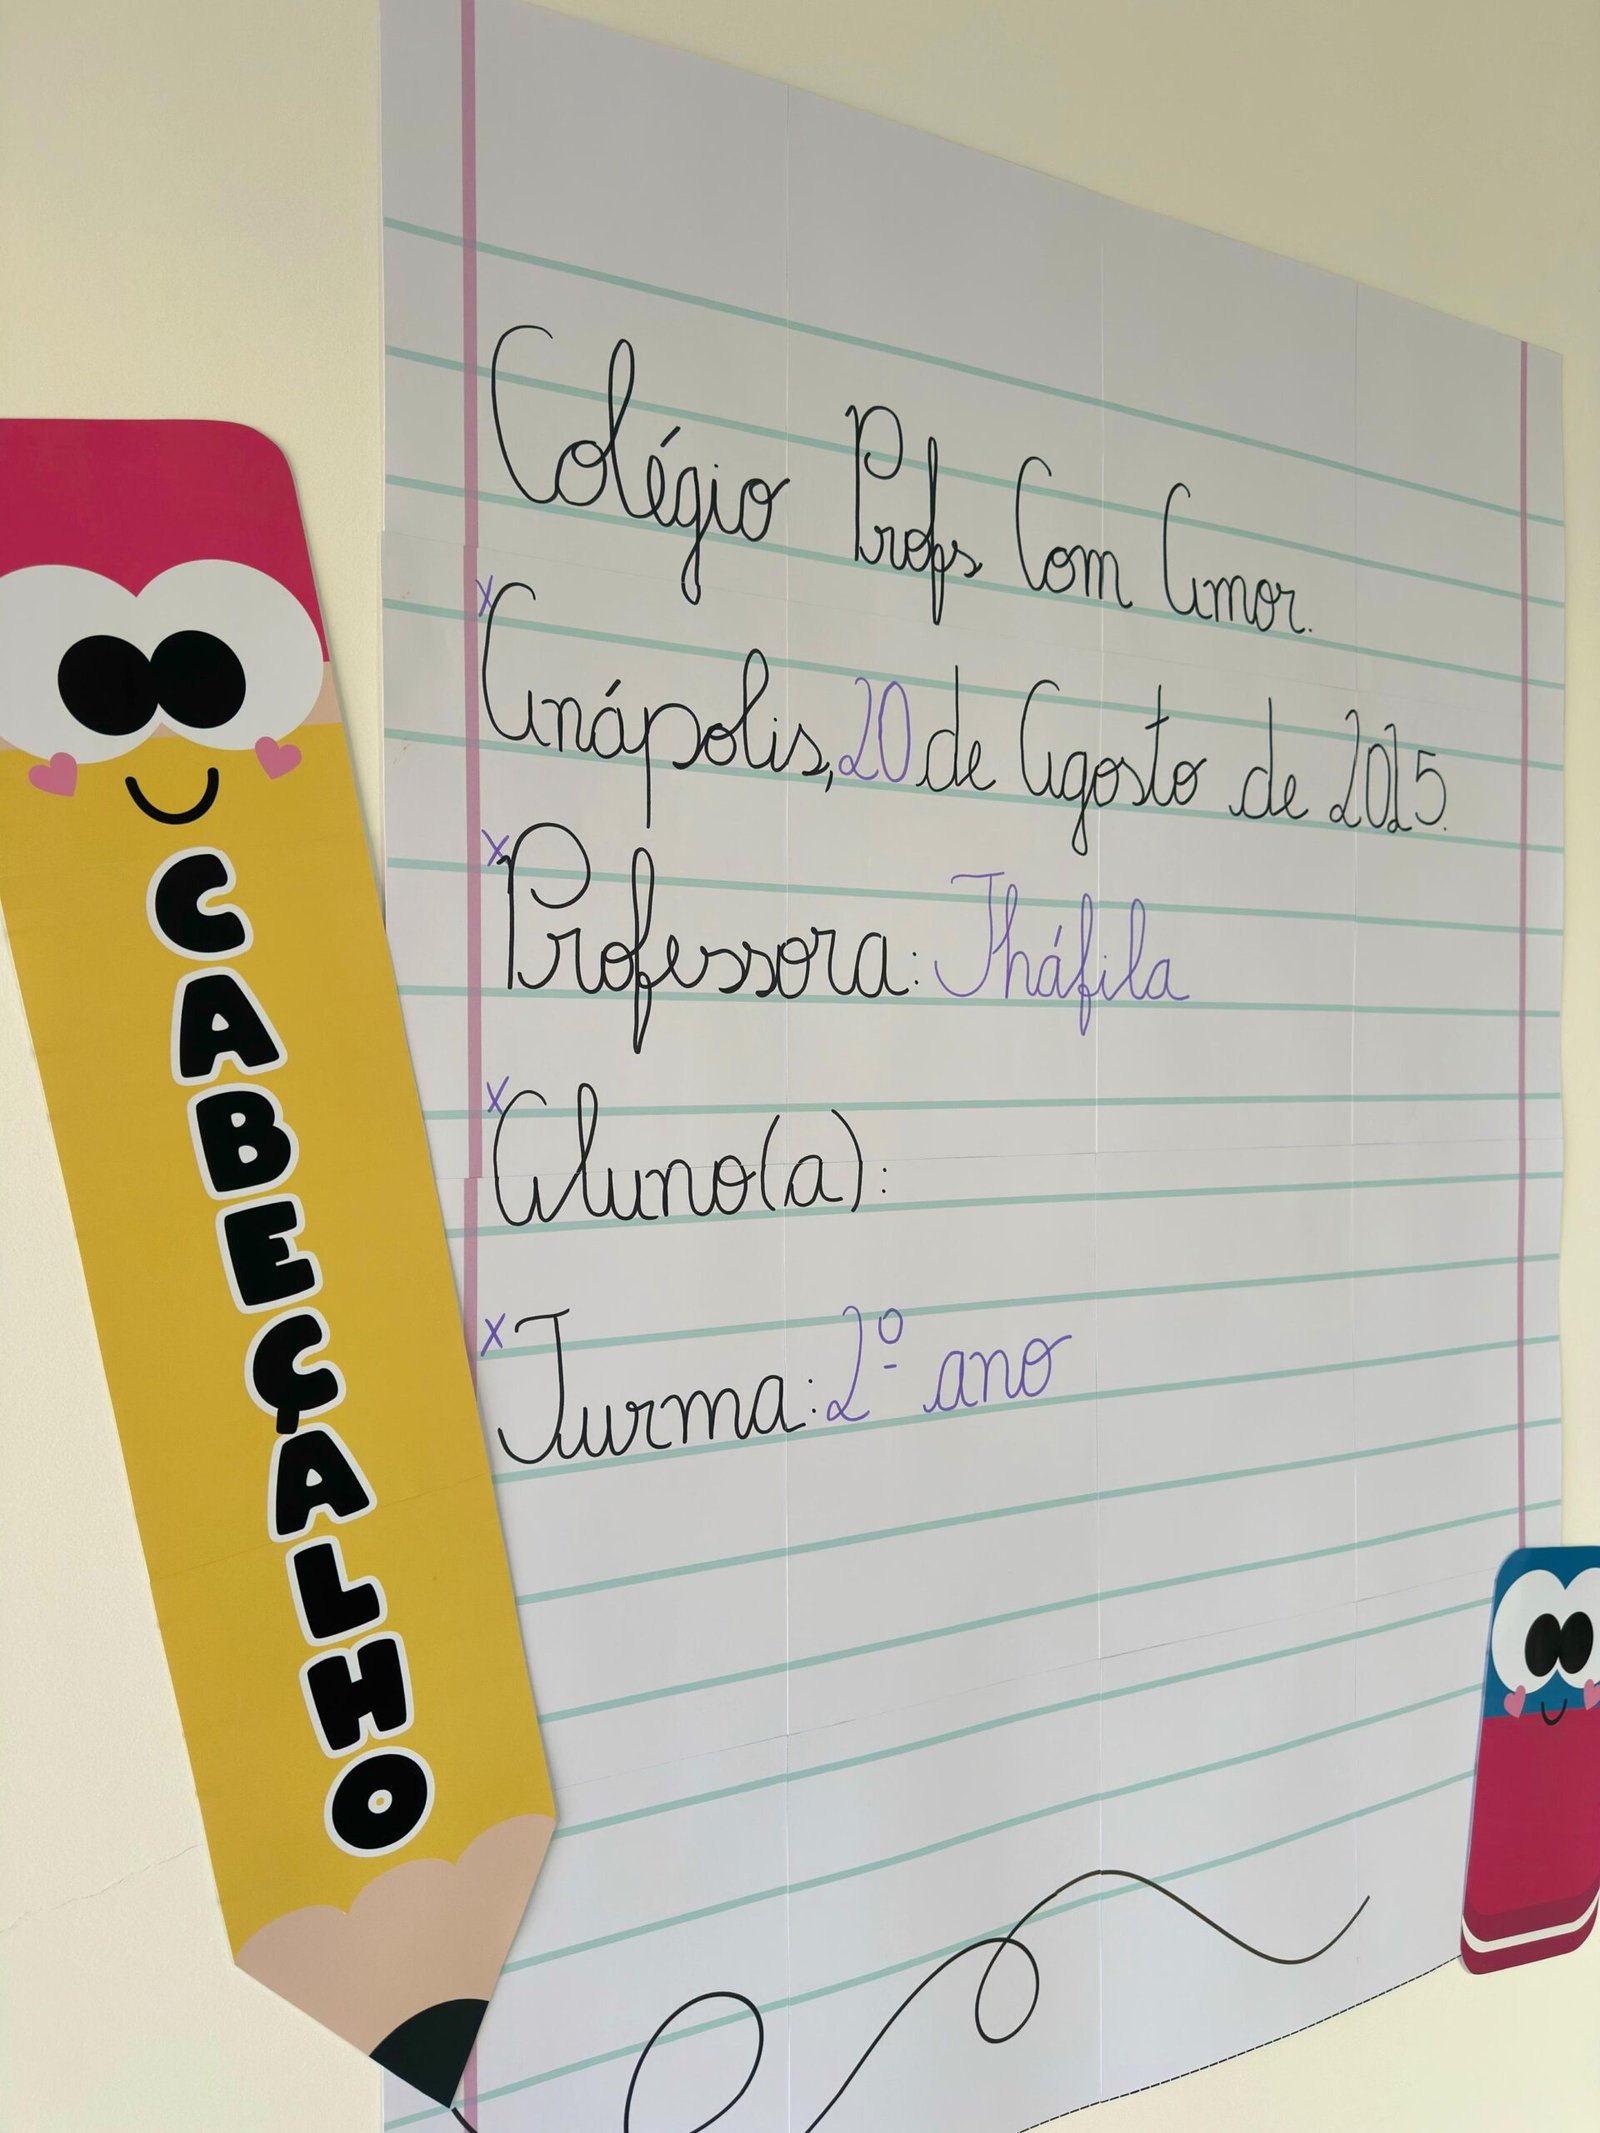 CABEÇALHO
Colégio Profs Com Amor.
x Anápolis, 20 de Agosto de 2025.
x Professora: Tháfila
x Aluno(a):
x Turma: 2º ano